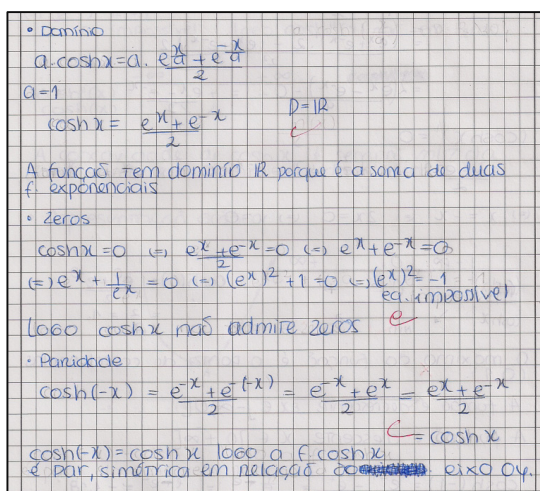 • Domínio
a.coshx = a. (e^(x/a) + e^(-x/a))/2
a=1
coshx = (e^x + e^-x)/2 D=IR
c
A função tem domínio IR porque é a soma de duas
f. exponenciais
• zeros
coshx=0 (=) (e^x + e^-x)/2 = 0 (=) e^x + e^-x = 0
(=) e^x + 1/e^x = 0 (=) (e^x)^2 + 1 = 0 (=) (e^x)^2 = -1
eq. impossível
Logo coshx não admite zeros
• Paridade
cosh(-x) = (e^-x + e^-(-x))/2 = (e^-x + e^x)/2 = (e^x + e^-x)/2
= coshx
cosh(-x) = coshx logo a f. coshx
é par, simétrica em relação ao eixo Oy.